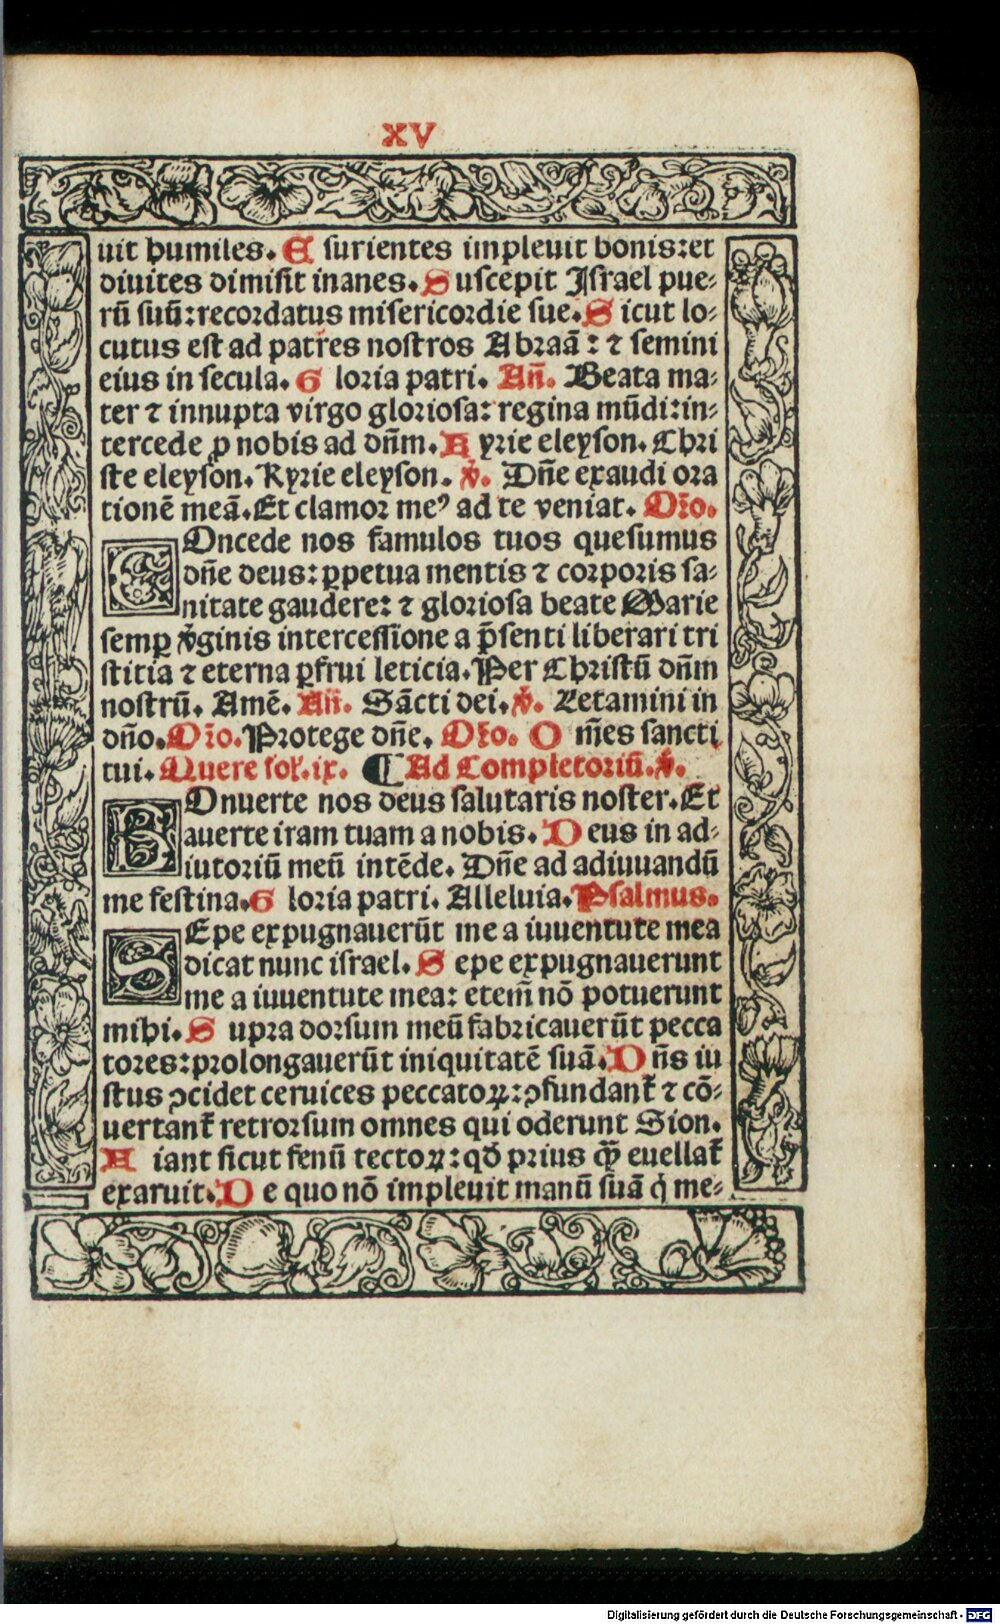 XV
uit humiles. E surientes impleuit bonis: et
diuites dimisit inanes. S uscepit Israel pue-
rū suū: recordatus misericordie sue. S icut lo-
cutus est ad patres nostros Abraā: ⁊ semini
eius in secula. G loria patri. Añ. Beata ma-
ter ⁊ innupta virgo gloriosa: regina mūdi: in-
tercede ꝓ nobis ad dñm. K yrie eleyson. Chri
ste eleyson. Kyrie eleyson. ℣. Dñe exaudi ora
tionē meā. Et clamor meꝰ ad te veniat. Oŕo.
COncede nos famulos tuos quesumus
dñe deus: ꝑpetua mentis ⁊ corporis sa-
nitate gaudere: ⁊ gloriosa beate Marie
semꝑ ṽginis intercessione a p̄senti liberari tri
stitia ⁊ eterna ꝑfrui leticia. Per Christū dñm
nostrū. Amē. Añ. Sācti dei. ℣. Letamini in
dño. Oŕo. Protege dñe. Oŕo. O m̄es sancti
tui. Quere fol. ix. ¶ Ad Completoriū. ℣.
BOnuerte nos deus salutaris noster. Et
auerte iram tuam a nobis. D eus in ad-
iutoriū meū intēde. Dñe ad adiuuandū
me festina. G loria patri. Alleluia. Psalmus.
SEpe expugnauerūt me a iuuentute mea
dicat nunc israel. S epe expugnauerunt
me a iuuentute mea: etem̄ nō potuerunt
mihi. S upra dorsum meū fabricauerūt pecca
tores: prolongauerūt iniquitatē suā. D ñs iu
stus ↄcidet ceruices peccatoꝝ: ↄfundant̃ ⁊ cō-
uertant̃ retrorsum omnes qui oderunt Sion.
F iant sicut fenū tectoꝝ: qđ prius q̄ȝ euellat̃
exaruit. D e quo nō impleuit manū suā q̇ me-
Digitalisierung gefördert durch die Deutsche Forschungsgemeinschaft - DFG